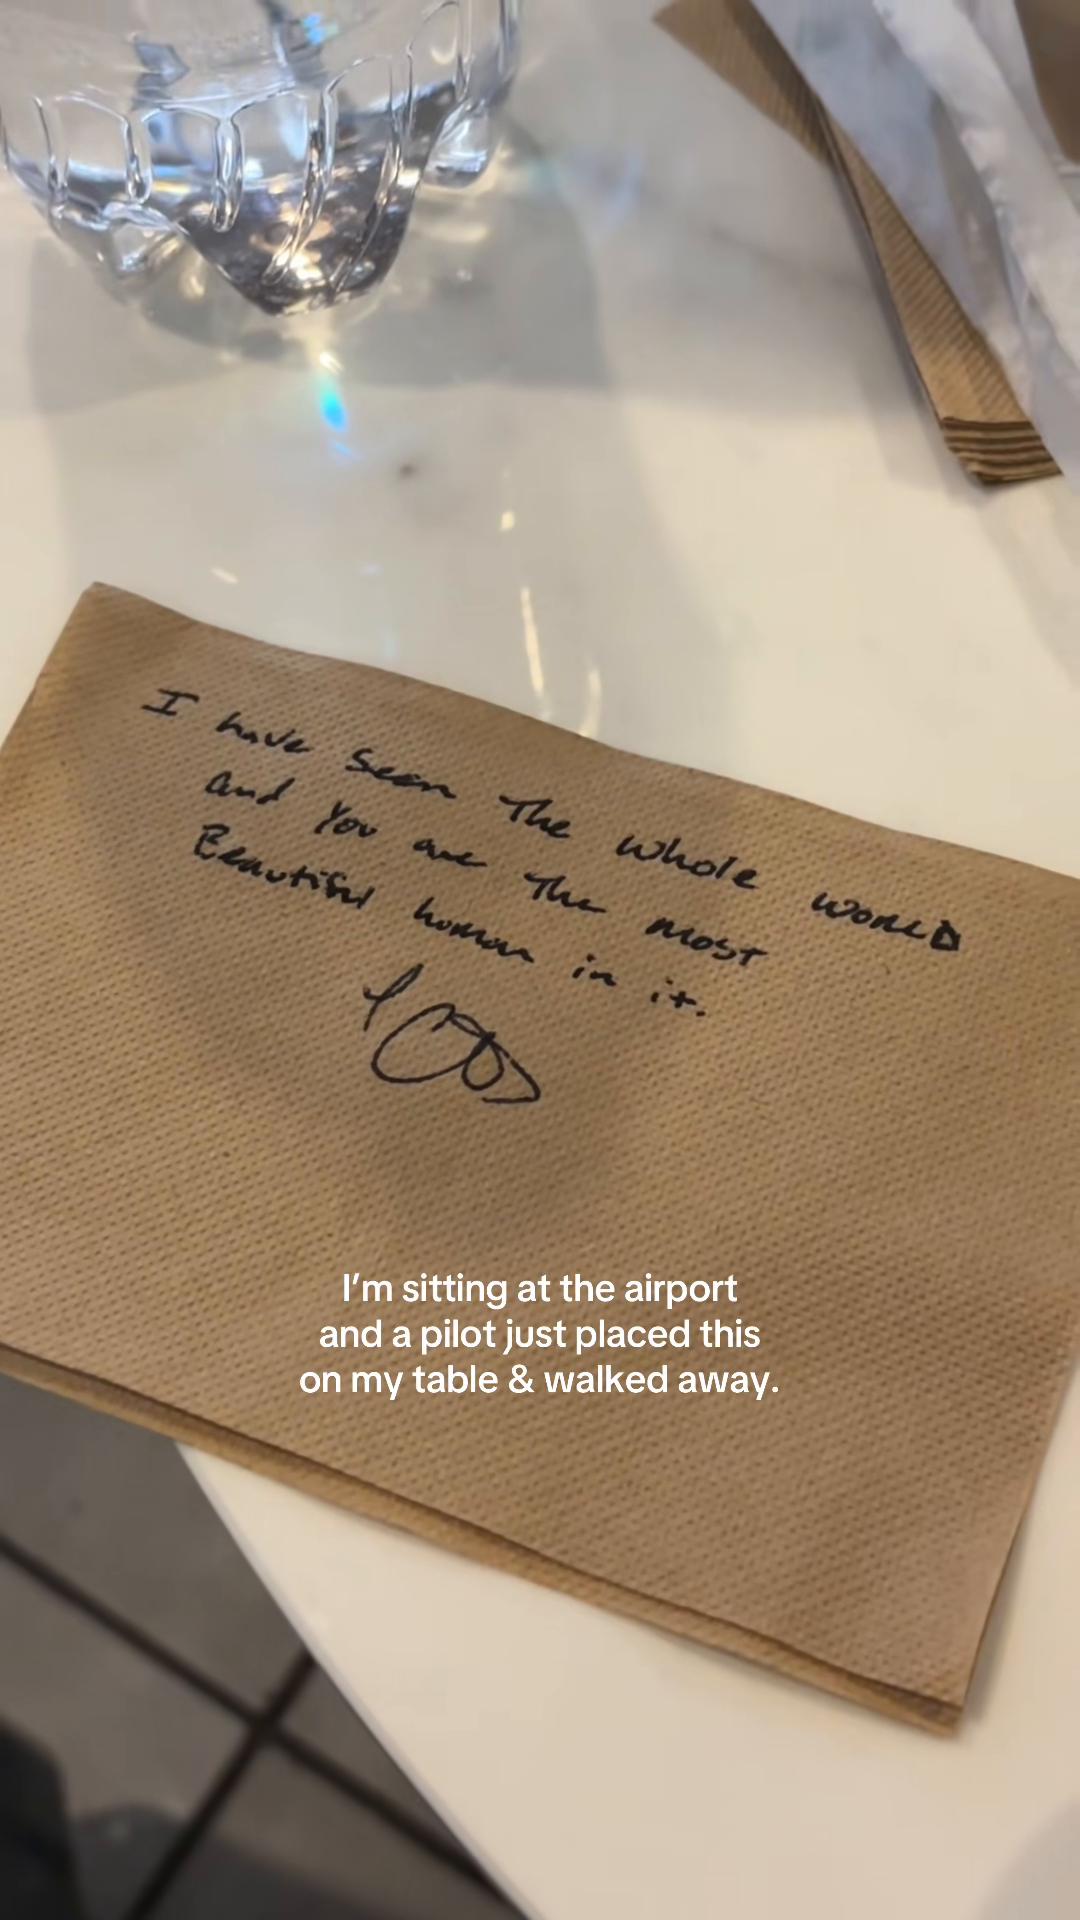 I have seen The whole WORLD
and You are The most
Beautiful human in it.
I’m sitting at the airport
and a pilot just placed this
on my table & walked away.